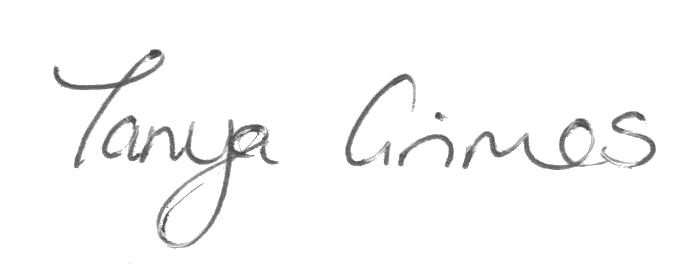 Tanya Grimes